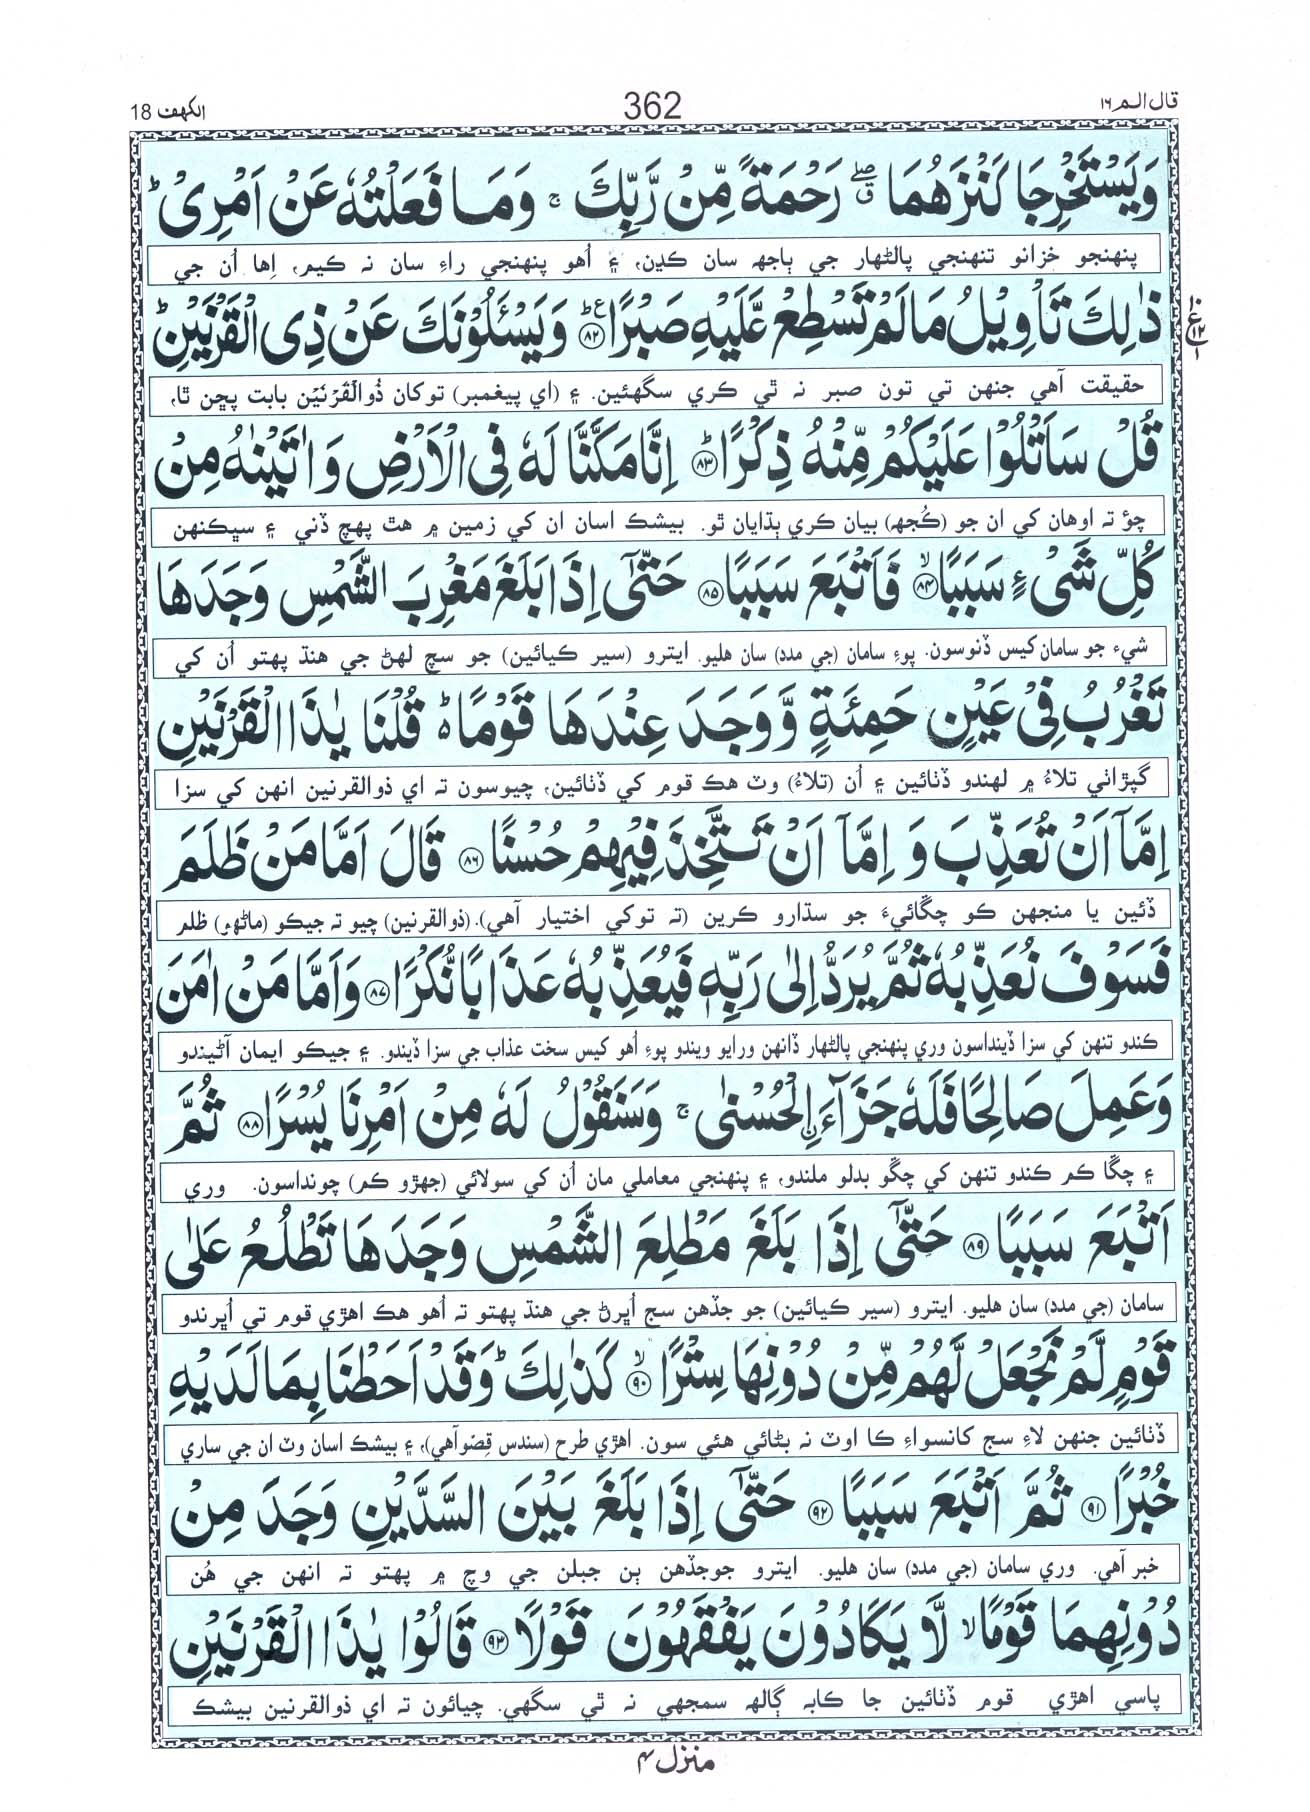 الكهف 18
362
قال الم ۱۶
وَيَسْتَخْرِجَا كَنْزَهُمَا ۖ رَحْمَةً مِّنْ رَّبِّكَ ۚ وَمَا فَعَلْتُهٗ عَنْ اَمْرِىْ ؕ
پنهنجو خزانو تنهنجي پالڻهار جي ٻاجهہ سان ڪڍن، ۽ اُهو پنهنجي راءِ سان نہ ڪيم، اِها اُن جي
ذٰلِكَ تَاْوِيْلُ مَا لَمْ تَسْطِعْ عَّلَيْهِ صَبْرًا ؕ ۸۲ وَيَسْـَٔلُوْنَكَ عَنْ ذِى الْقَرْنَيْنِ ؕ
حقيقت آهي جنهن تي تون صبر نہ ٿي ڪري سگهئين. ۽ (اي پيغمبر) توکان ذُوالْقَرْنَيْن بابت پڇن ٿا،
قُلْ سَاَتْلُوْا عَلَيْكُمْ مِّنْهُ ذِكْرًا ؕ ۸۳ اِنَّا مَكَّنَّا لَهٗ فِى الْاَرْضِ وَاٰتَيْنٰهُ مِنْ
چؤ تہ اوهان کي ان جو (ڪُجهہ) بيان ڪري ٻڌايان ٿو. بيشڪ اسان ان کي زمين ۾ هٿ پهچ ڏني ۽ سڀڪنهن
كُلِّ شَىْءٍ سَبَبًا ۙ ۸۴ فَاَتْبَعَ سَبَبًا ۸۵ حَتّٰٓى اِذَا بَلَغَ مَغْرِبَ الشَّمْسِ وَجَدَهَا
شيء جو سامان کيس ڏنوسون. پوءِ سامان (جي مدد) سان هليو. ايترو (سير ڪيائين) جو سج لهڻ جي هنڌ پهتو اُن کي
تَغْرُبُ فِىْ عَيْنٍ حَمِئَةٍ وَّوَجَدَ عِنْدَهَا قَوْمًا ؕ قُلْنَا يٰذَا الْقَرْنَيْنِ
گپڙاٺي تلاءُ ۾ لهندو ڏٺائين ۽ اُن (تلاءُ) وٽ هڪ قوم کي ڏٺائين، چيوسون تہ اي ذوالقرنين انهن کي سزا
اِمَّآ اَنْ تُعَذِّبَ وَ اِمَّآ اَنْ تَتَّخِذَ فِيْهِمْ حُسْنًا ۸۶ قَالَ اَمَّا مَنْ ظَلَمَ
ڏئين يا منجهن ڪو چڱائيءَ جو سڌارو ڪرين (تہ توکي اختيار آهي). (ذوالقرنين) چيو تہ جيڪو (ماڻهو) ظلم
فَسَوْفَ نُعَذِّبُهٗ ثُمَّ يُرَدُّ اِلٰى رَبِّهٖ فَيُعَذِّبُهٗ عَذَابًا نُّكْرًا ۸۷ وَاَمَّا مَنْ اٰمَنَ
ڪندو تنهن کي سزا ڏينداسون وري پنهنجي پالڻهار ڏانهن ورايو ويندو پوءِ اُهو کيس سخت عذاب جي سزا ڏيندو. ۽ جيڪو ايمان آڻيندو
وَعَمِلَ صَالِحًا فَلَهٗ جَزَآءَ ۨالْحُسْنٰى ۚ وَسَنَقُوْلُ لَهٗ مِنْ اَمْرِنَا يُسْرًا ۸۸ ثُمَّ
۽ چڱا ڪم ڪندو تنهن کي چڱو بدلو ملندو، ۽ پنهنجي معاملي مان اُن کي سولائي (جهڙو ڪم) چونداسون. وري
اَتْبَعَ سَبَبًا ۸۹ حَتّٰٓى اِذَا بَلَغَ مَطْلِعَ الشَّمْسِ وَجَدَهَا تَطْلُعُ عَلٰى
سامان (جي مدد) سان هليو. ايترو (سير ڪيائين) جو جڏهن سج اُڀرڻ جي هنڌ پهتو تہ اُهو هڪ اهڙي قوم تي اُڀرندو
قَوْمٍ لَّمْ نَجْعَلْ لَّهُمْ مِّنْ دُوْنِهَا سِتْرًا ۙ ۹۰ كَذٰلِكَ ؕ وَقَدْ اَحَطْنَا بِمَا لَدَيْهِ
ڏٺائين جنهن لاءِ سج کانسواءِ ڪا اوٽ نہ بڻائي هئي سون. اهڙي طرح (سندس قِصّو آهي)، ۽ بيشڪ اسان وٽ ان جي ساري
خُبْرًا ۹۱ ثُمَّ اَتْبَعَ سَبَبًا ۹۲ حَتّٰٓى اِذَا بَلَغَ بَيْنَ السَّدَّيْنِ وَجَدَ مِنْ
خبر آهي. وري سامان (جي مدد) سان هليو. ايترو جوجڏهن ٻن جبلن جي وچ ۾ پهتو تہ انهن جي هُن
دُوْنِهِمَا قَوْمًا ۙ لَّا يَكَادُوْنَ يَفْقَهُوْنَ قَوْلًا ۹۳ قَالُوْا يٰذَا الْقَرْنَيْنِ
پاسي اهڙي قوم ڏٺائين جا ڪابہ ڳالهہ سمجهي نہ ٿي سگهي. چيائون تہ اي ذوالقرنين بيشڪ
منزل ۴